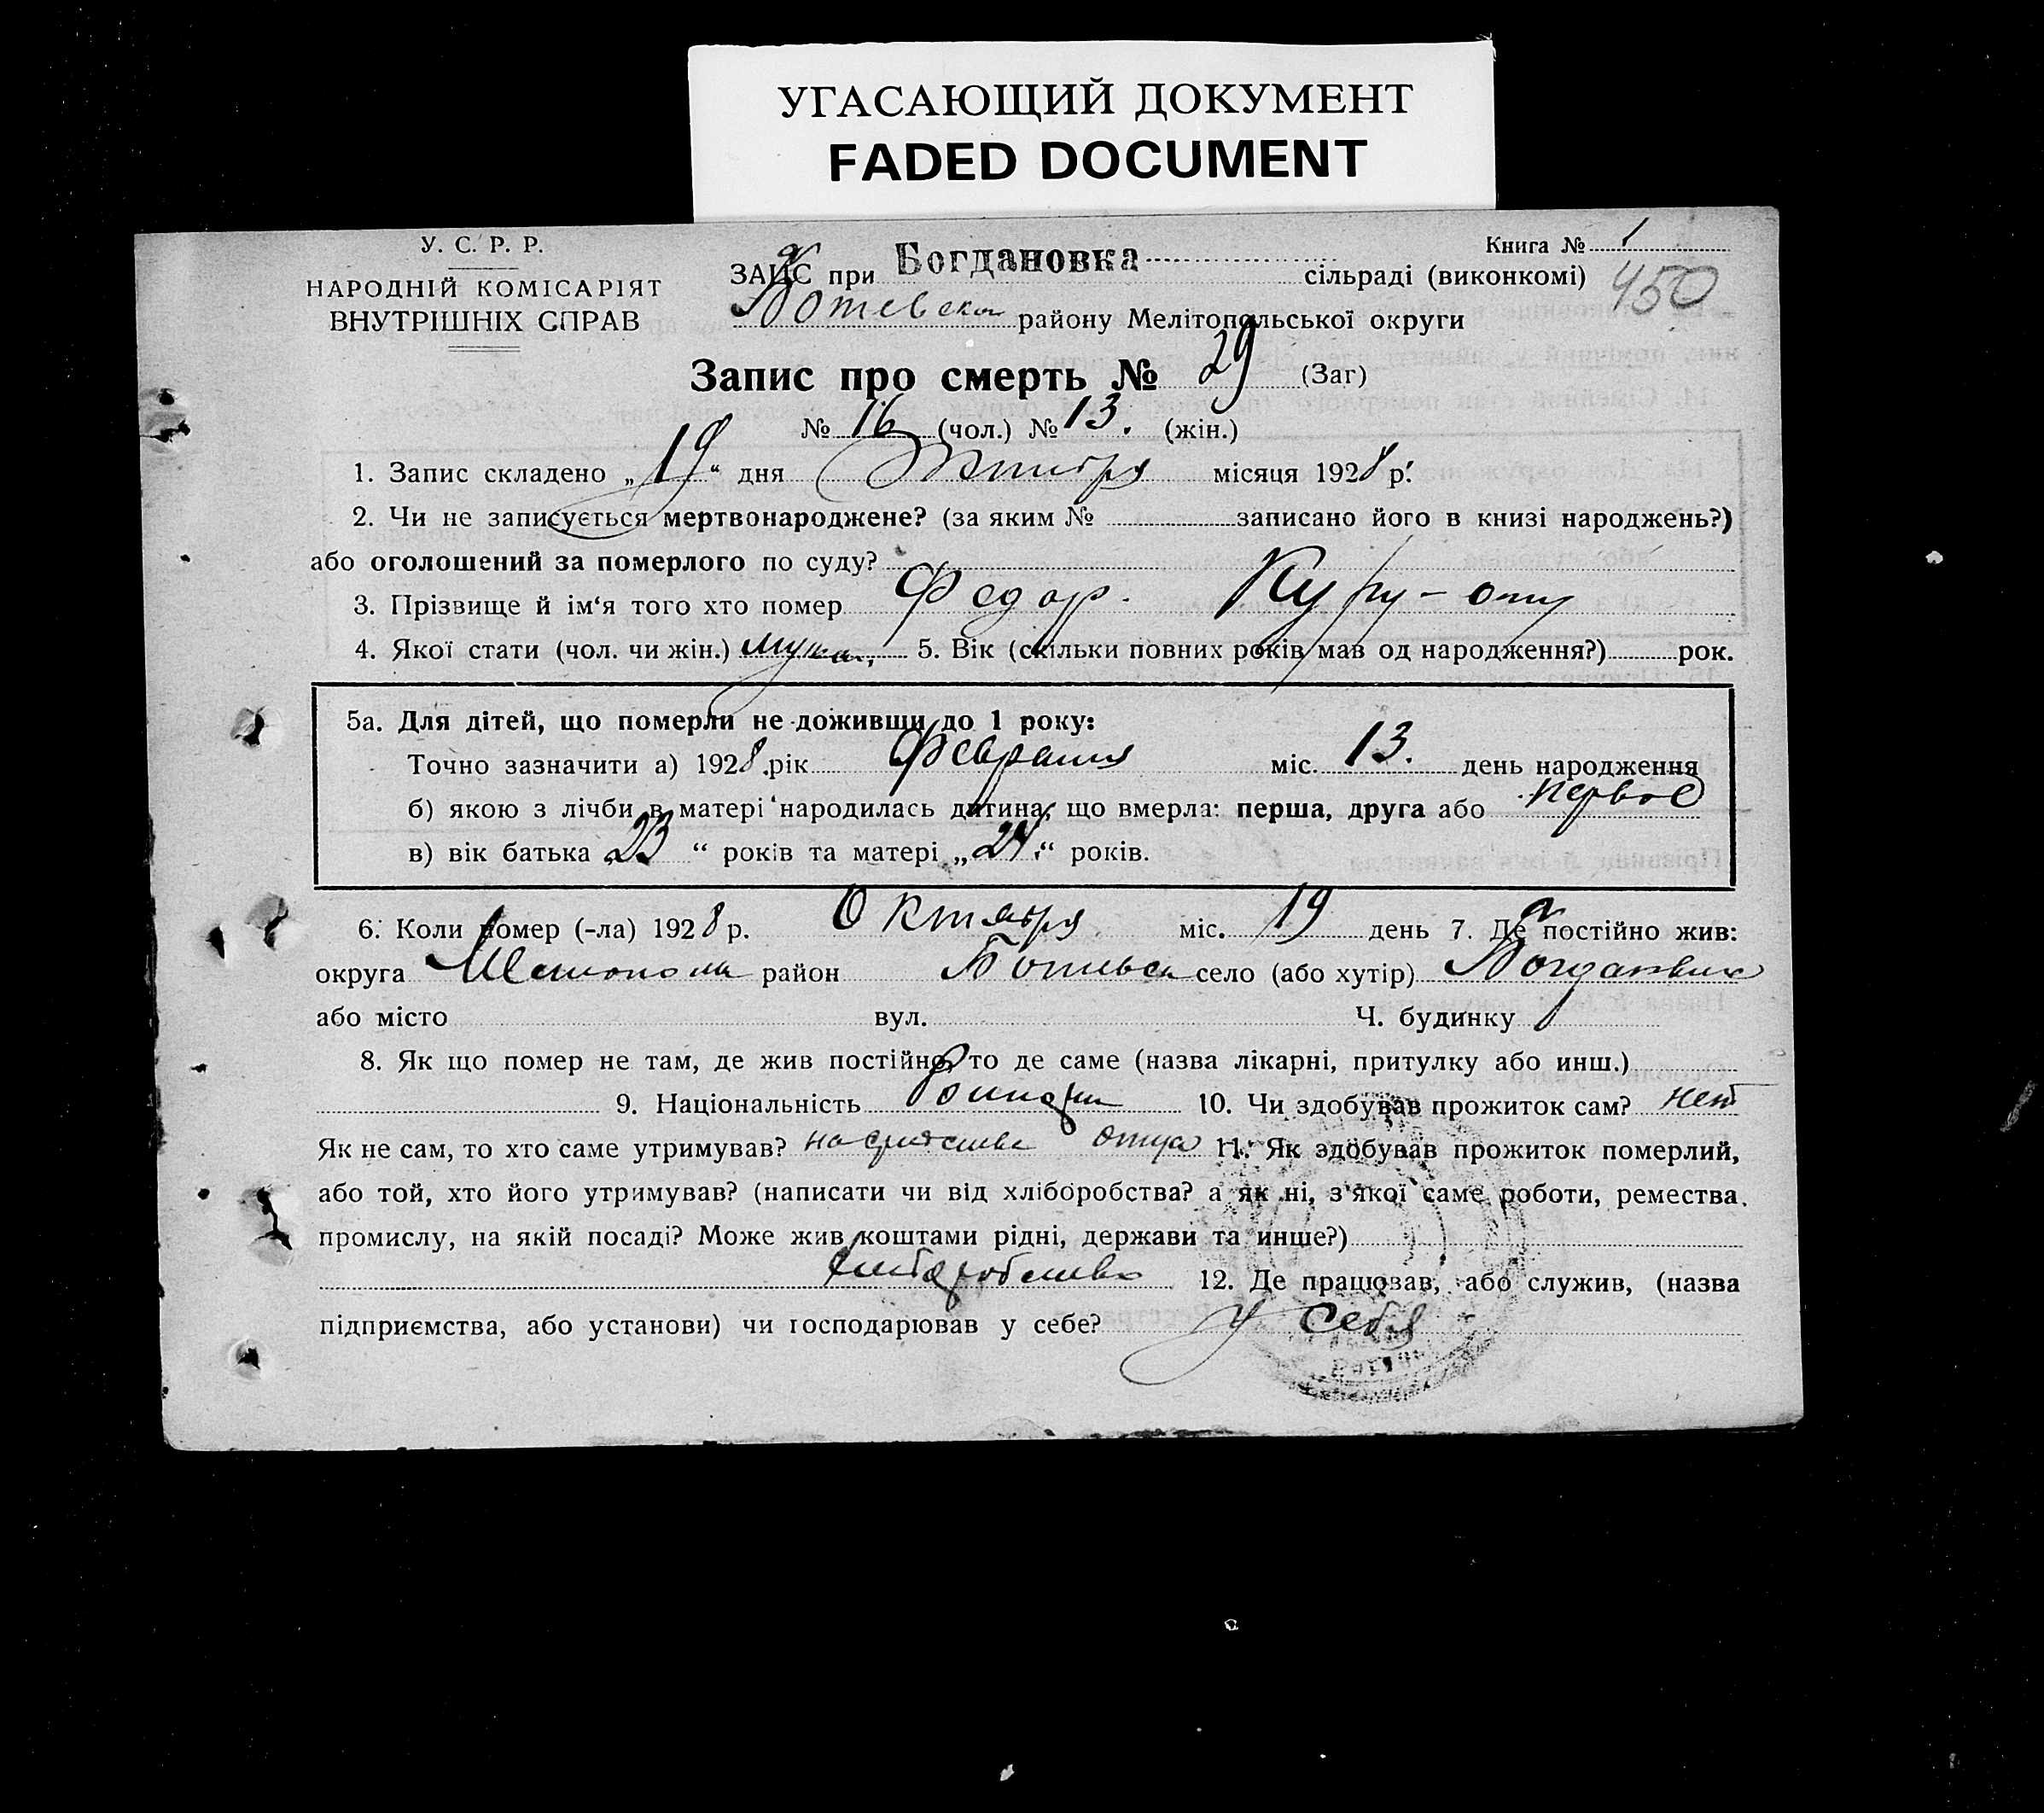 УГАСАЮЩИЙ ДОКУМЕНТ
FADED DOCUMENT
У. С. Р. Р.
НАРОДНІЙ КОМІСАРІЯТ
ВНУТРІШНІХ СПРАВ
Книга № 1
450
ЗАЦС при Богдановка сільраді (виконкомі)
району Мелітопольської округи
Запис про смерть № 29 (Заг)
№ 16 (чол.) № 13. (жін.)
1. Запис складено „ 19 “ дня Октября місяця 1928 р.
2. Чи не записується мертвонароджене? (за яким № записано його в книзі народжень?)
або оголошений за померлого по суду?
3. Прізвище й ім‘я того хто помер Федор.
4. Якої стати (чол. чи жін.) 5. Вік (скільки повних років мав од народження?) рок.
5а. Для дітей, що померли не доживши до 1 року:
Точно зазначити а) 1928 рік Февраля міс. 13. день народження
б) якою з лічби в матері народилась дитина, що вмерла: перша, друга або первое
в) вік батька „ 23 “ років та матері „ 24 “ років.
6. Коли помер (-ла) 1928 р. Октября міс. 19 день 7. Де постійно жив:
округа район село (або хутір)
або місто вул. Ч. будинку
8. Як що помер не там, де жив постійно, то де саме (назва лікарні, притулку або инш.)
9. Національність 10. Чи здобував прожиток сам? нет
Як не сам, то хто саме утримував? на средства отца 11. Як здобував прожиток померлий,
або той, хто його утримував? (написати чи від хліборобства? а як ні, з якої саме роботи, ремества,
промислу, на якій посаді? Може жив коштами рідні, держави та инше?)
12. Де працював, або служив, (назва
підприємства, або установи) чи господарював у себе? У себя